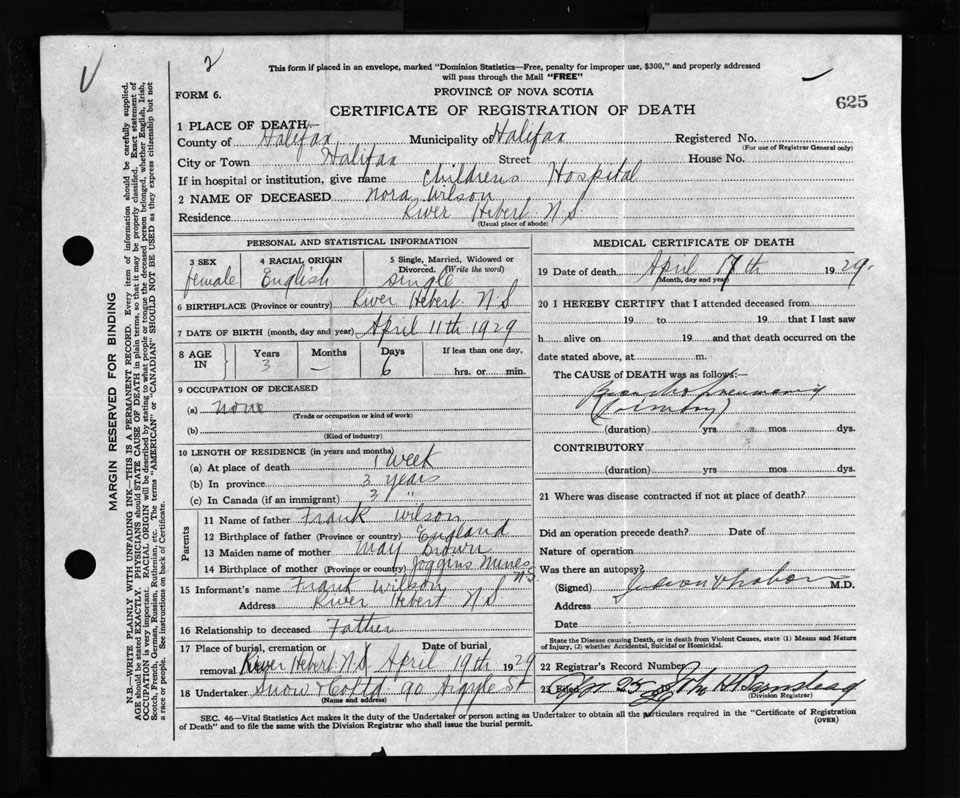 2
This form if placed in an envelope, marked "Dominion Statistics—Free, penalty for improper use, $300," and properly addressed
will pass through the Mail "FREE"
FORM 6.
PROVINCE OF NOVA SCOTIA
CERTIFICATE OF REGISTRATION OF DEATH
625
1 PLACE OF DEATH
County of Halifax Municipality of Halifax Registered No.
(For use of Registrar General only)
City or Town Halifax Street House No.
If in hospital or institution, give name Childrens Hospital
2 NAME OF DECEASED Nora Wilson
Residence River Hebert N S
(Usual place of abode)
PERSONAL AND STATISTICAL INFORMATION
3 SEX 4 RACIAL ORIGIN 5 Single, Married, Widowed or
Divorced. (Write the word)
female English Single
6 BIRTHPLACE (Province or country) River Hebert N S
7 DATE OF BIRTH (month, day and year) April 11th 1929
8 AGE IN Years Months Days If less than one day,
3 — 6 hrs. or min.
9 OCCUPATION OF DECEASED
(a) none
(Trade or occupation or kind of work)
(b)
(Kind of industry)
10 LENGTH OF RESIDENCE (in years and months)
(a) At place of death 1 week
(b) In province 3 years
(c) In Canada (if an immigrant) 3 "
Parents
11 Name of father Frank Wilson
12 Birthplace of father (Province or country) England
13 Maiden name of mother May Brown
14 Birthplace of mother (Province or country) Joggins Mines N.S
15 Informant's name Frank Wilson
Address River Hebert N S
16 Relationship to deceased Father
17 Place of burial, cremation or removal River Hebert N.S Date of burial April 19th 1929
18 Undertaker Snow & Co Ltd 90 Argyle St
(Name and address)
MEDICAL CERTIFICATE OF DEATH
19 Date of death April 17th 1929.
(Month, day and year)
20 I HEREBY CERTIFY that I attended deceased from
19 to 19 that I last saw
h alive on 19 and that death occurred on the
date stated above, at m.
The CAUSE OF DEATH was as follows:—
Broncho pneumonia
(duration) yrs mos dys.
CONTRIBUTORY
(duration) yrs mos dys.
21 Where was disease contracted if not at place of death?
Did an operation precede death? Date of
Nature of operation
Was there an autopsy?
(Signed) M.D.
Address
Date
State the Disease causing Death, or in death from Violent Causes, state (1) Means and Nature
of Injury, (2) whether Accidental, Suicidal or Homicidal.
22 Registrar's Record Number
23 Filed Apr 25 John H Barnstead
(Division Registrar)
SEC. 46—Vital Statistics Act makes it the duty of the Undertaker or person acting as Undertaker to obtain all the particulars required in the "Certificate of Registration
of Death" and to file the same with the Division Registrar who shall issue the burial permit.
(OVER)
MARGIN RESERVED FOR BINDING
N.B.—WRITE PLAINLY WITH UNFADING INK—THIS IS A PERMANENT RECORD. Every item of information should be carefully supplied.
AGE should be stated EXACTLY. PHYSICIANS should STATE CAUSE OF DEATH in plain terms, so that it may be properly classified. Exact statement of
OCCUPATION is very important. RACIAL ORIGIN will be described by stating to what people or tongue the deceased person belonged, whether English, Irish,
Scotch, French, German, Russian, Ruthenian, etc. The terms "AMERICAN" or "CANADIAN" SHOULD NOT BE USED as they express citizenship but not
a race or people. See instructions on back of Certificate.